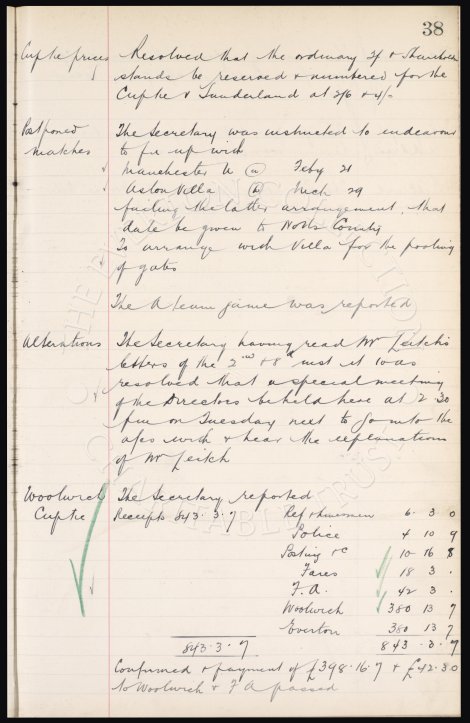 38
Cuptie prices Resolved that the ordinary 2/- & Shareholders
stands be reserved & numbered for the
Cuptie v Sunderland at 2/6 & 4/-
Postponed The Secretary was instructed to endeavour
matches to fix up with
Manchester U @ Feby 21
Aston Villa (h) Mch 29
failing the latter arrangement, that
date be given to Notts County
To arrange with Villa for the pooling
of gates
The A team game was reported
Alterations The Secretary having read Mr Leitch's
letters of the 2nd & 8th inst it was
resolved that a special meeting
of the Directors be held here at 2.30
pm on Tuesday next to go into the
with & hear the explanations
of Mr Leitch
Woolwich The Secretary reported
Cuptie Receipts 843.3.7 Ref & linesmen 6. 3. 0
Police 4 10 9
Posting &c 10 16 8
Fares 18 3 .
F.A. 42 3 .
Woolwich 380 13 7
Everton 380 13 7
843.3.7 843.3.7
Confirmed & payment of £398.16.7 & £42.3.0
to Woolwich & F A passed